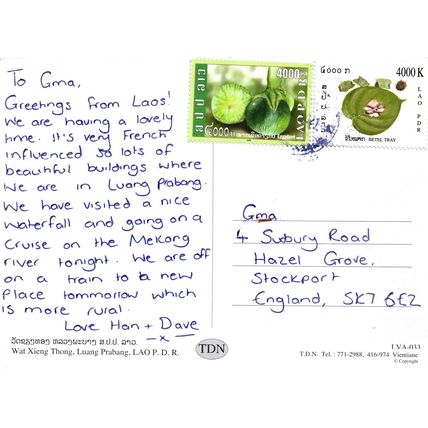 To Gma,
Greetings from Laos!
We are having a lovely
time. It's very French
influenced so lots of
beautiful buildings where
we are in Luang Prabang.
We have visited a nice
waterfall and going on a
cruise on the Mekong
river tonight. We are off
on a train to a new
place tommorrow which
is more rural.
Love Han + Dave
x
4000 K
LAO PDR
໔໐໐໐ ກ
4000 K
LAO PDR
BETEL TRAY
Gma
4 Sudbury Road
Hazel Grove,
Stockport
England, SK7 6EZ
ວັດຊຽງທອງ ຫລວງພະບາງ ສ.ປ.ປ. ລາວ.
Wat Xieng Thong, Luang Prabang, LAO P. D. R.
TDN
LVA-033
T.D.N. Tel. : 771-2988, 416-974 Vientiane
© Copyright